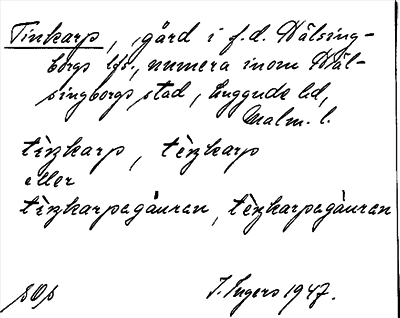 Tinkarp, gård i f.d. Hälsing-
borgs lfs., numera inom Häl-
singborgs stad, Luggude hd,
Malm. l.
tìŋkarp, tèŋkarp
eller
tìŋkarpagå̀uran, tèŋkarpagå̀uran
SOs
I. Ingers 1947.